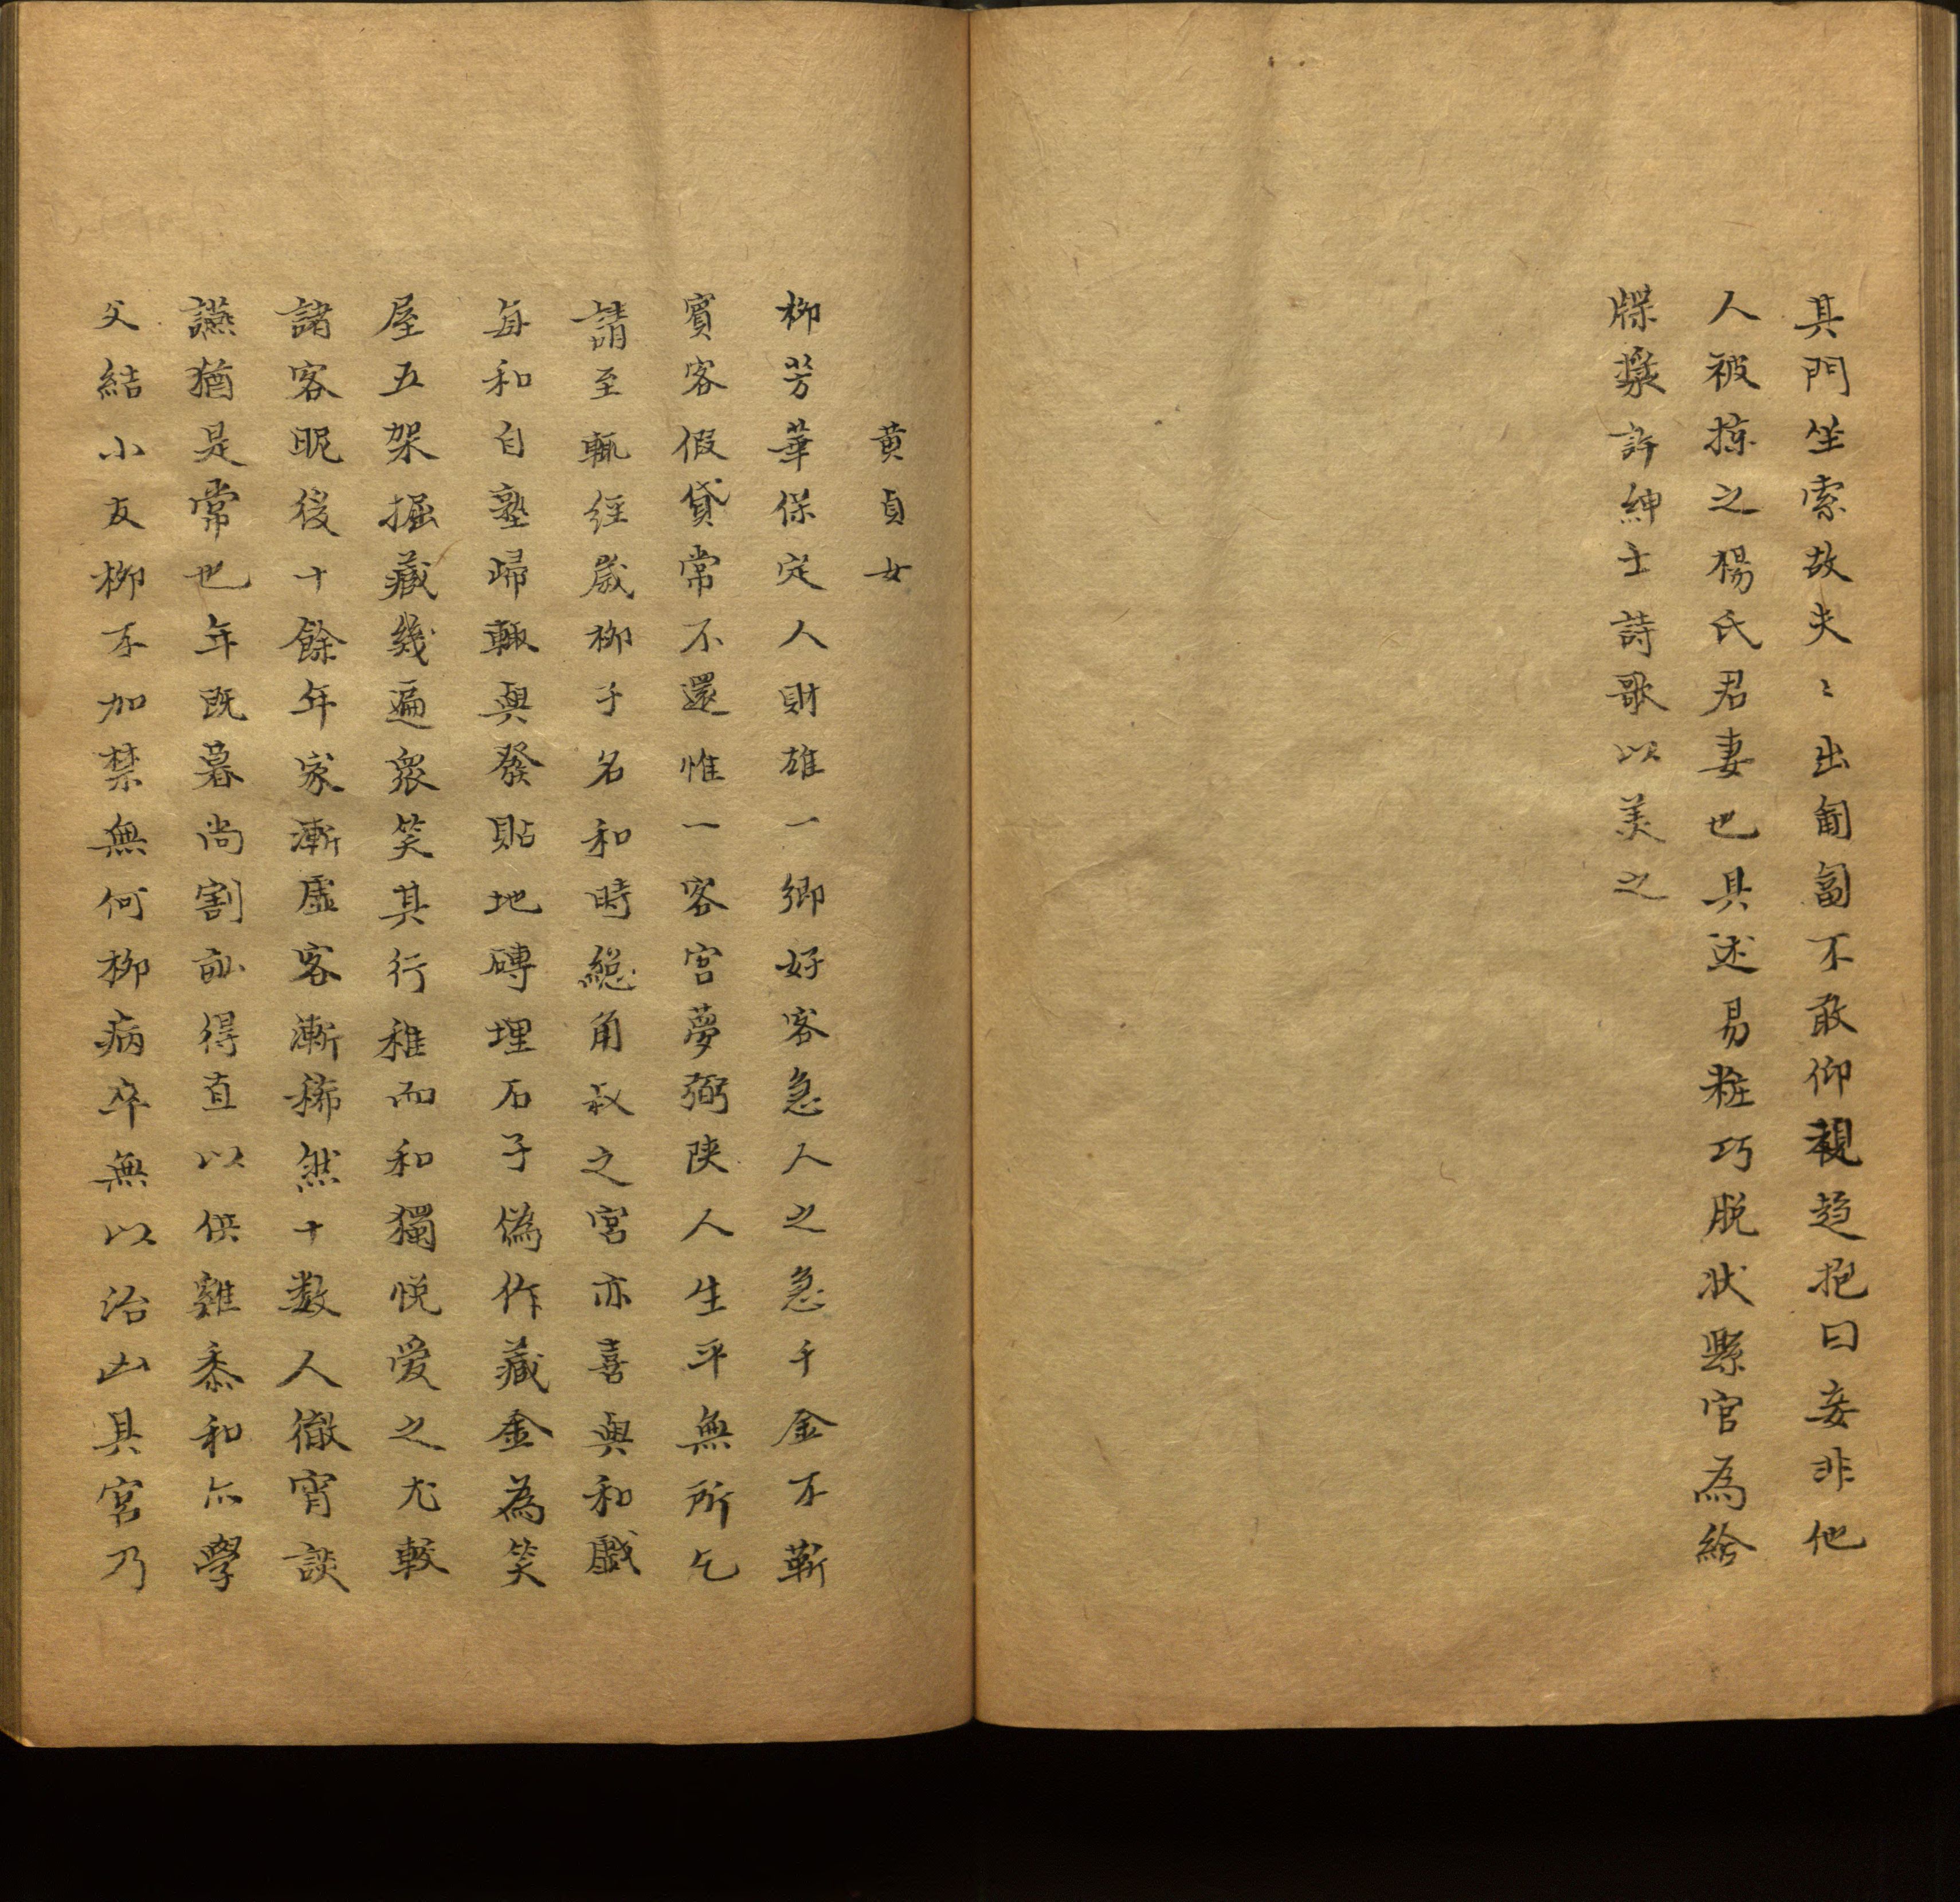 其門坐索故夫〻出匍匐不敢仰視趋抱曰妾非他
人被掠之楊氏君妻也具述易粧巧脱状縣官為給
牒奨許紳士詩歌以美之
黄貞女
栁芳華保定人財雄一鄉好客急人之急千金不靳
賔客假貸常不還惟一客宫夢弼陕人生平無所乞
請至輒经歳栁子名和時總角叔之宮亦喜與和戯
每和自塾歸輙與發貼地磚埋石子偽作藏金為笑
屋五架掘藏幾遍衆笑其行稚而和獨悦爱之尤較
諸客昵後十餘年家漸虚客漸稀然十数人徹宵談
讌猶是常也年既暮尚割畝得直以供雞黍和亦學
父結小友栁不加禁無何栁病卒無以治凶具宫乃